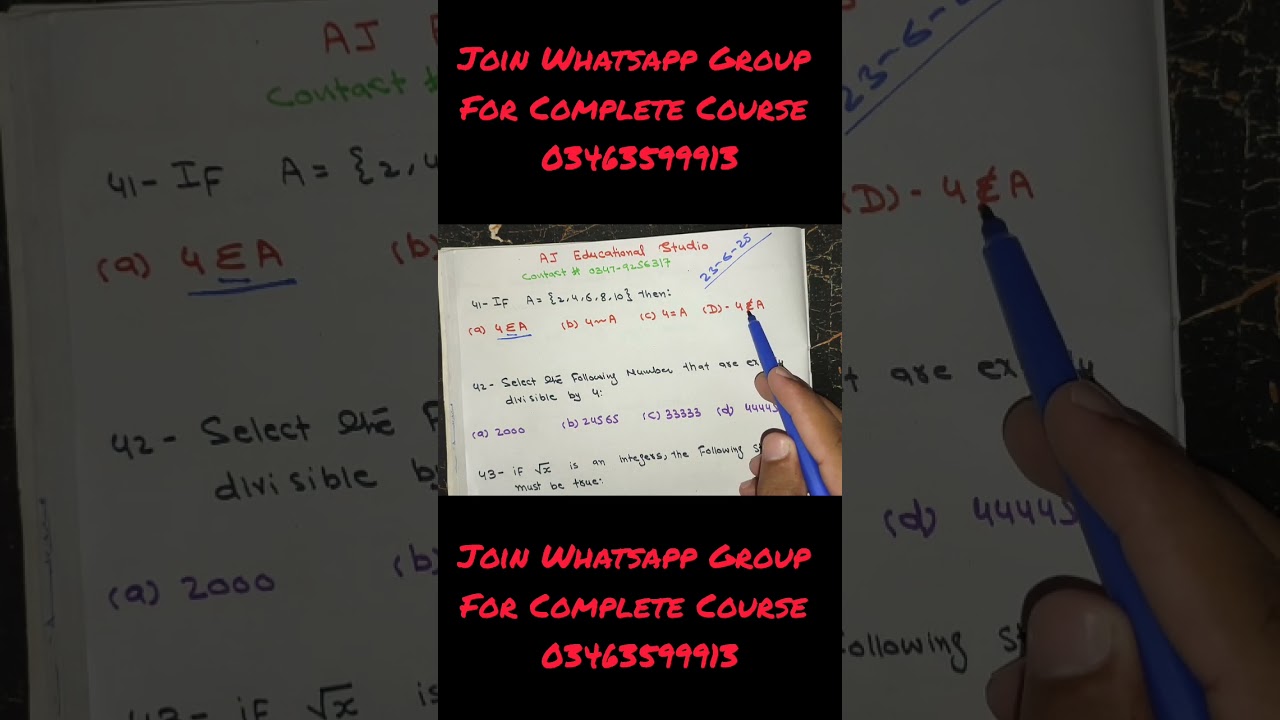 Join Whatsapp Group
For Complete Course
03463599913
AJ Educational Studio
Contact # 0347-9256317
23-6-25
41- IF A = {2,4,6,8,10} Then:
(a) 4 ∈ A (b) 4~A (c) 4=A (D)- 4 ∉ A
42- Select the Following Number that are
divisible by 4:
(a) 2000 (b) 24565 (c) 33333 (d) 44445
43- if √x is an integers, the Following
must be true:
Join Whatsapp Group
For Complete Course
03463599913